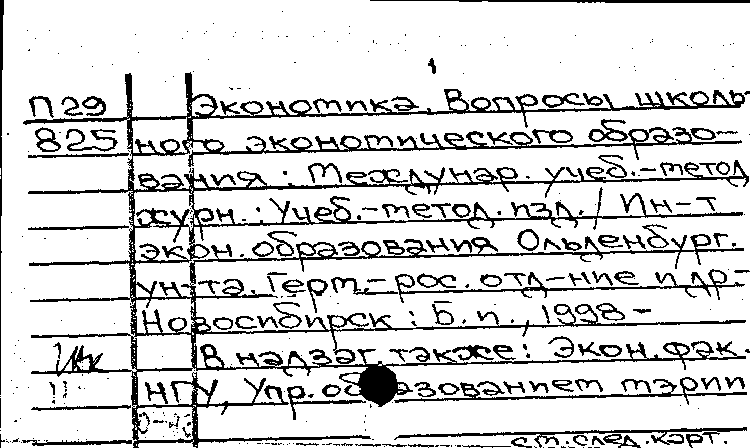 П29 Экономика. Вопросы школь-
825 ного экономического образо-
вания : Междунар. учеб.-метод.
журн. : Учеб.-метод. изд. / Ин-т
экон. образования Ольденбург.
ун-та. Герм.-рос. отд-ние и др.-
Новосибирск : Б. и., 1998 -
В надзаг. также: Экон. фак.
11 НГУ, Упр. образованием мэрии
см. след. карт.